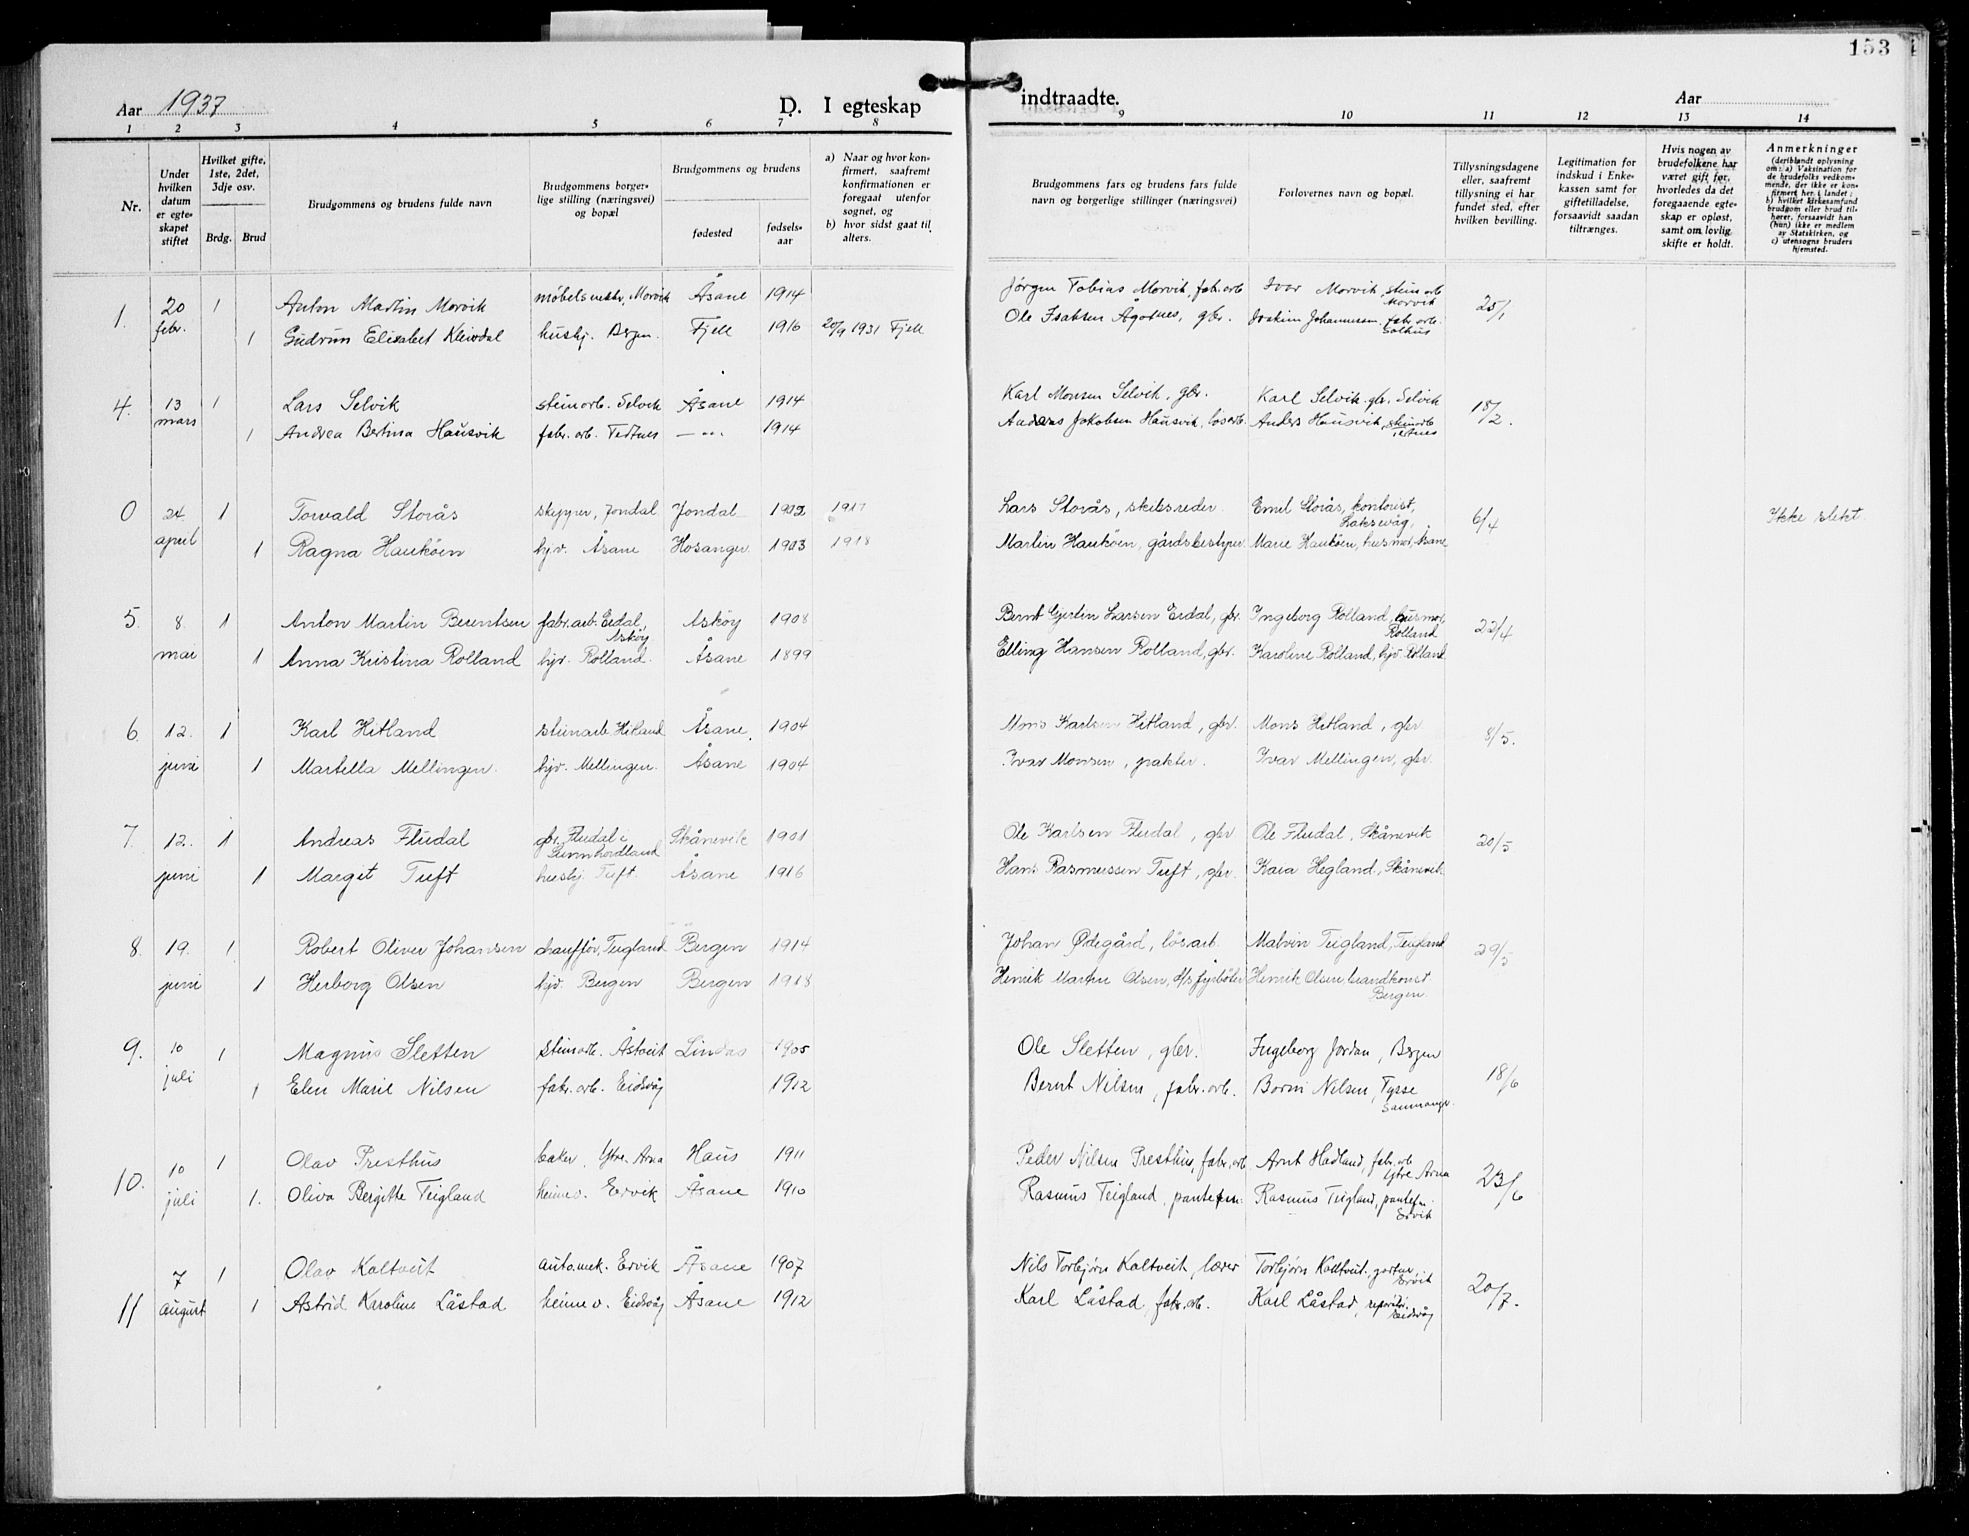 153
Aar 1937
D. I egteskap indtraadte.
Aar
1 2 3 4 5 6 7 8 9 10 11 12 13 14
Nr.
Under hvilken datum er egteskapet stiftet
Hvilket gifte, 1ste, 2det, 3dje osv.
Brdg. Brud
Brudgommens og brudens fulde navn
Brudgommens borgerlige stilling (næringsvei) og bopæl
Brudgommens og brudens
fødested
fødselsaar
a) Naar og hvor konfirmert, saafremt konfirmationen er foregaat utenfor sognet, og
b) hvor sidst gaat til alters.
Brudgommens fars og brudens fars fulde navn og borgerlige stillinger (næringsvei)
Forlovernes navn og bopæl.
Tillysningsdagene eller, saafremt tillysning ei har fundet sted, efter hvilken bevilling.
Legitimation for indskud i Enkekassen samt for giftetilladelse, forsaavidt saadan tiltrænges.
Hvis nogen av brudefolkene har været gift før, hvorledes da det foregaaende egteskap er opløst, samt om lovlig skifte er holdt.
Anmerkninger (deriblandt oplysning om: a) Vaksination for de brudefolks vedkommende, der ikke er konfirmert her i landet; b) hvilket kirkesamfund brudgom eller brud tilhører, forsaavidt han (hun) ikke er medlem av Statskirken, og c) utensogns bruders hjemsted.
1. 20 febr. 1 Anton Martin Morvik møbelsnekkr, Morvik Åsane 1914 Jørgen Tobias Morvik, fabr.arb Ivar Morvik, stein arb Morvik 25/1
1 Gudrun Elisabet Kleivdal hushj. Bergen. Fjell 1916 20/9 1931 Fjell Ole Isaksen Ågotnes, gbr. Joakim Johannessen, fabr.arb. Salhus
4. 13 mars 1 Lars Selvik steinarb. Selvik Åsane 1914 Karl Monsen Selvik, gbr. Karl Selvik. gbr, Selvik 18/2.
1 Andrea Bertina Hausvik fabr. arb. Tertnes — „ . 1914 Anders Jakobsen Hausvik, løsarb. Anders Hausvik, steinarb Tertnes
0 24. april 1 Torvald Storås skipper, Jondal Jondal 1902 1917 Lars Storås, skibsreder Emil Storås, kontorist, Laksevåg, 6/4 Ikke slekt.
1 Ragna Haukøen hjv. Åsane Hosanger 1903 1918 Martin Haukøen, gårdsbestyrer Marie Haukøen, husmor, Åsane
5. 8. mai 1 Anton Martin Berentsen fabr.arb. Erdal, Askøy Askøy 1908 Bernt Gjertin Larsen Erdal, gbr. Ingeborg Rolland, husmor, Rolland 22/4
1 Anna Kristina Rolland hjv. Rolland. Åsane 1899 Elling Hansen Rolland, gbr. Karoline Rolland, hjv Rolland
6. 12. juni 1 Karl Hitland steinarb Hitland Åsane. 1904 Mons Karlsen Hitland, gbr. Mons Hitland, gbr 8/5.
1 Martella Mellingen. hjv. Mellingen. Åsane 1904 Ivar Monsen, pakter. Ivar Mellingen, gbr.
7. 12. juni 1 Andreas Fludal gbr. Fludal i Sunnhordland Skånevik 1901 Ole Karlsen Fludal, gbr Ole Fludal, Skånevik 20/5
1 Marget Tuft hushj. Tuft. Åsane 1916 Hans Rasmussen Tuft, gbr. Kaia Hegland, Skånevik
8. 19. juni 1 Robert Oliver Johansen chauffør, Teigland Bergen 1914 Johan Ødegård, løsarb. Malvin Teigland, Teigland 29/5
1 Herborg Olsen hjv. Bergen Bergen 1918 Henrik Martin Olsen, d/s fyrbøter Henrik Olsen, brandkonst. Bergen.
9. 10 juli 1 Magnus Sletten steinarb. Åstveit Lindås 1905 Ole Sletten, gbr. Ingeborg Jordan, Bergen 18/6
1 Elen Marie Nilsen fabr. arb. Eidsvåg 1912 Bernt Nilsen, fabr. arb. Borni Nilsen, Tysse Samnanger.
10. 10 juli 1 Olav Presthus baker, Ytre-Arna Haus 1911 Peder Nilsen Presthus, fabr.arb Arnt Hadland, fabr.arb Ytre Arna 23/6
1. Oliva Bergitte Teigland heimev. Ervik Åsane 1910 Rasmus Teigland, pantefm. Rasmus Teigland, pantefm. Ervik
11 7 august 1 Olav Kaltveit automek. Ervik Åsane 1907 Nils Torbjørn Kaltveit, lærer Torbjørn Kaltveit, gartner, Ervik 20/7.
1 Astrid Karoline Låstad heimev. Eidsvåg Åsane 1912 Karl Låstad, fabr. arb. Karl Låstad, Eidsvåg